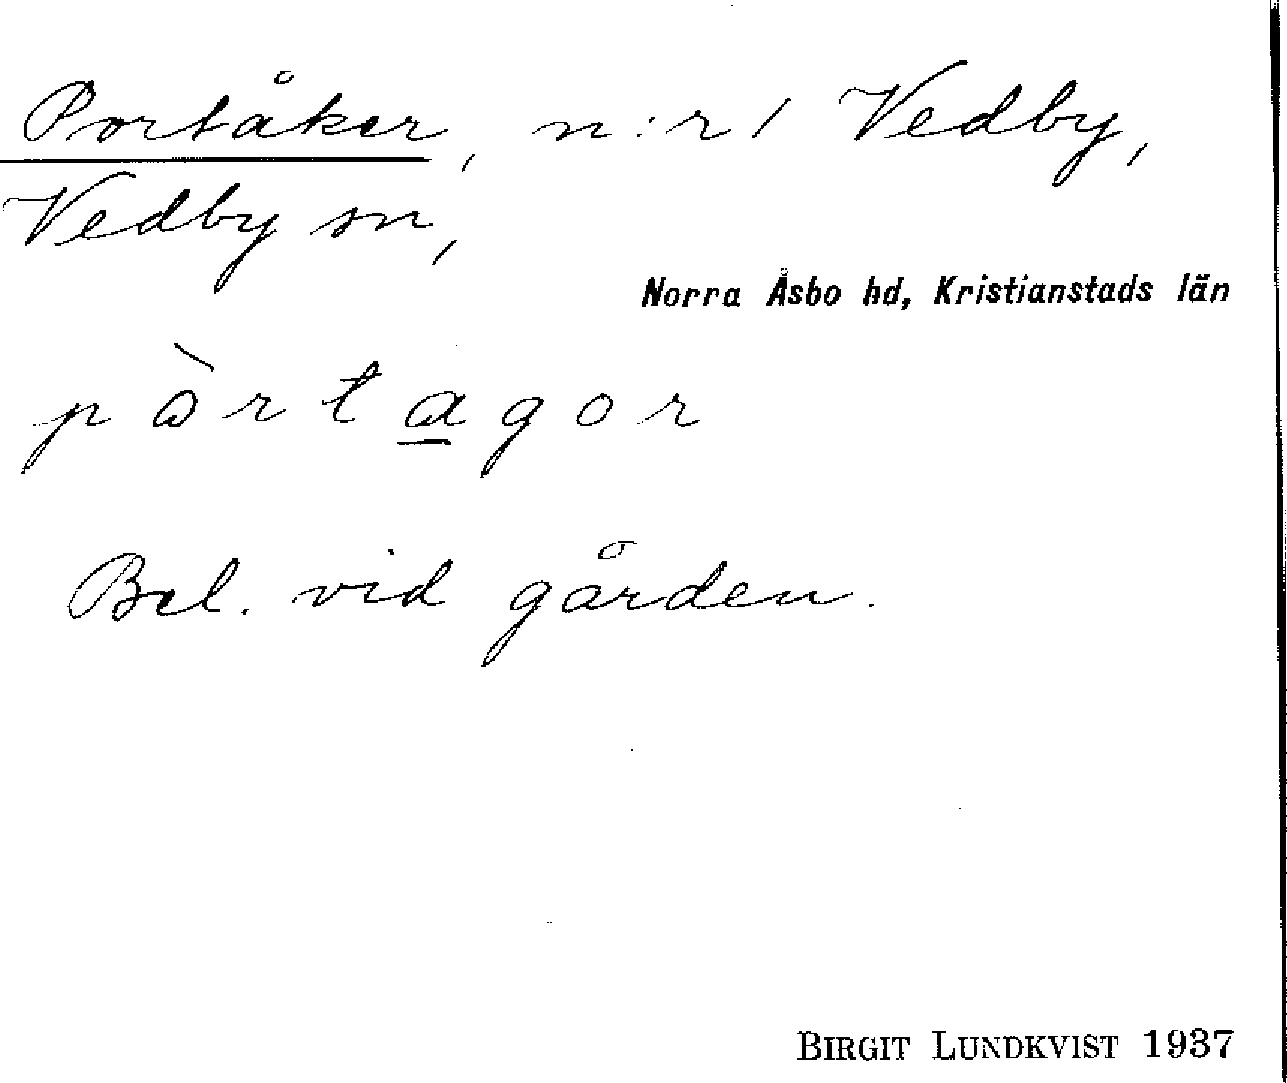 Portåker, n:r 1 Vedby,
Vedby sn,
Norra Åsbo hd, Kristianstads län
pàrtagor
Bel. vid gården.
BIRGIT LUNDKVIST 1937